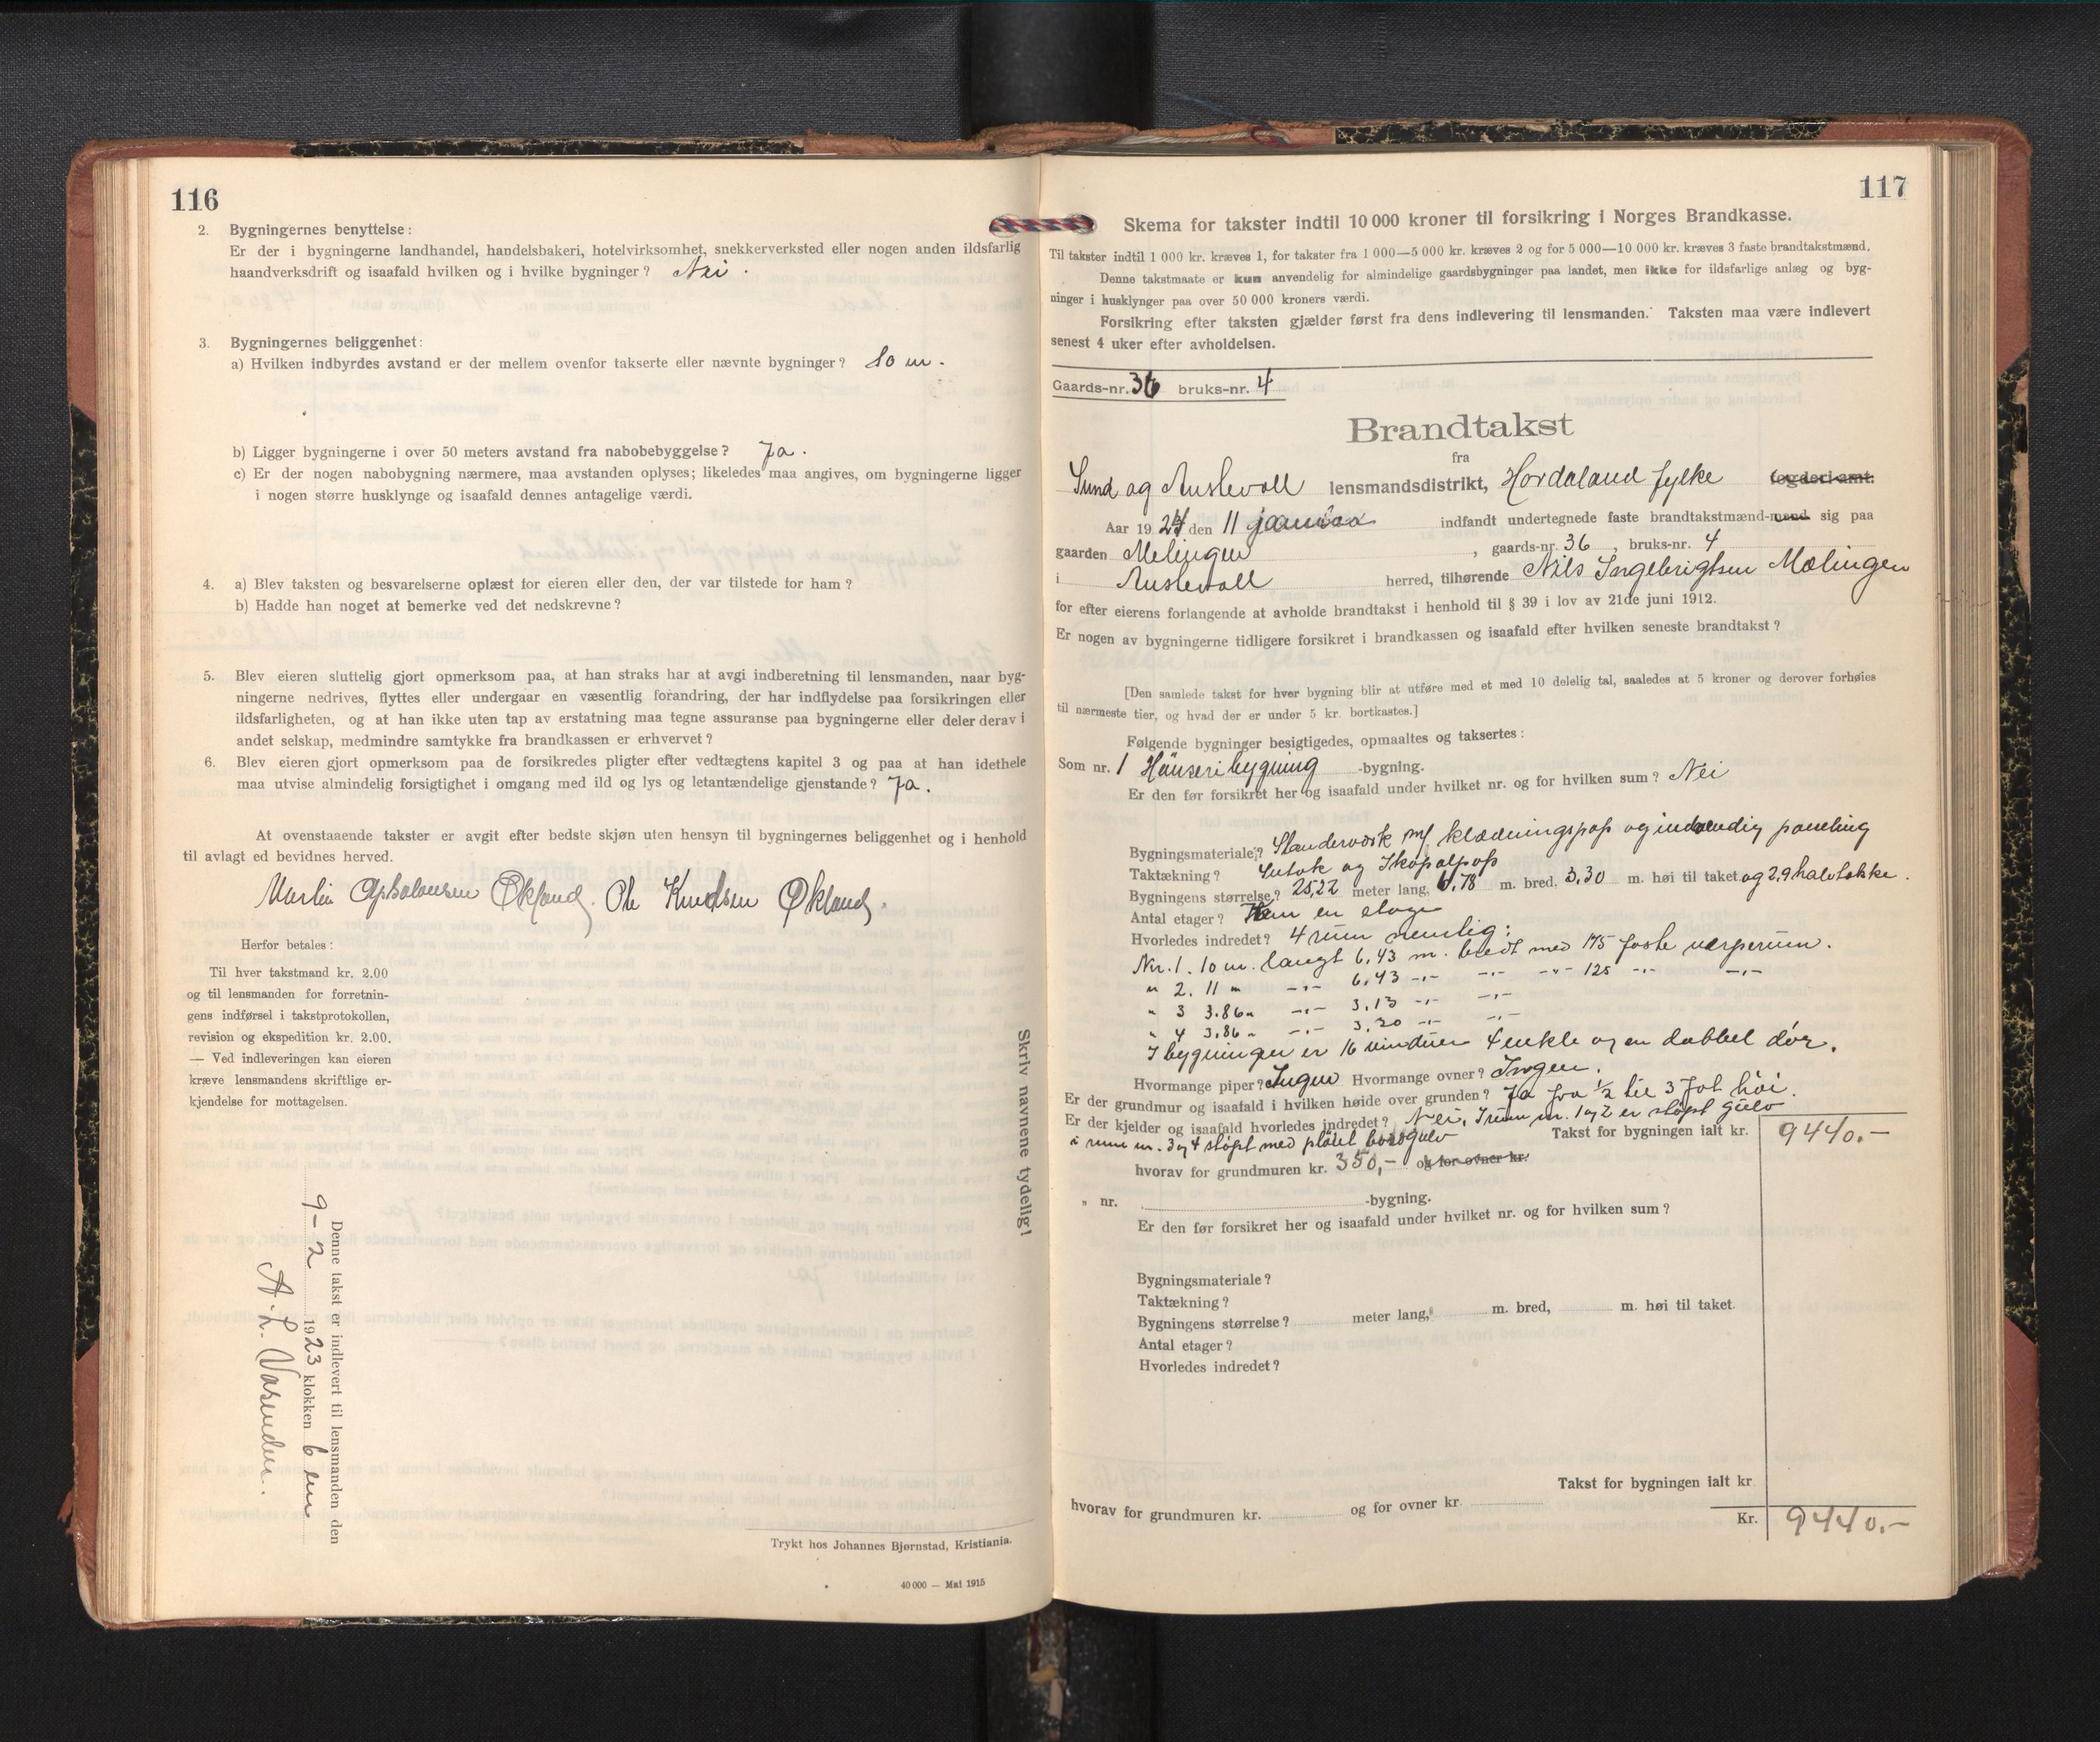 116
2. Bygningernes benyttelse:
Er der i bygningerne landhandel, handelsbakeri, hotelvirksomhet, snekkerverksted eller nogen anden ildsfarlig
haandverksdrift og isaafald hvilken og i hvilke bygninger? Nei.
3. Bygningernes beliggenhet:
a) Hvilken indbyrdes avstand er der mellem ovenfor takserte eller nævnte bygninger? 10 m.
b) Ligger bygningerne i over 50 meters avstand fra nabobebyggelse? Ja.
c) Er der nogen nabobygning nærmere, maa avstanden oplyses; likeledes maa angives, om bygningerne ligger
i nogen større husklynge og isaafald dennes antagelige værdi.
4. a) Blev taksten og besvarelserne oplæst for eieren eller den, der var tilstede for ham?
b) Hadde han noget at bemerke ved det nedskrevne?
5. Blev eieren sluttelig gjort opmerksom paa, at han straks har at avgi indberetning til lensmanden, naar byg-
ningerne nedrives, flyttes eller undergaar en væsentlig forandring, der har indflydelse paa forsikringen eller
ildsfarligheten, og at han ikke uten tap av erstatning maa tegne assuranse paa bygningerne eller deler derav i
andet selskap, medmindre samtykke fra brandkassen er erhvervet?
6. Blev eieren gjort opmerksom paa de forsikredes pligter efter vedtægtens kapitel 3 og paa at han idethele
maa utvise almindelig forsigtighet i omgang med ild og lys og letantændelige gjenstande? Ja.
At ovenstaaende takster er avgit efter bedste skjøn uten hensyn til bygningernes beliggenhet og i henhold
til avlagt ed bevidnes herved.
Martin Apsalonsen Økland. Ole Knudsen Økland.
Herfor betales:
Til hver takstmand kr. 2.00
og til lensmanden for forretnin-
gens indførsel i takstprotokollen,
revision og ekspedition kr. 2.00.
— Ved indleveringen kan eieren
kræve lensmandens skriftlige er-
kjendelse for mottagelsen.
Skriv navnene tydelig!
Denne takst er indlevert til lensmanden den
9-2 1923 klokken 6 em
A. L. Vasenden.
Trykt hos Johannes Bjørnstad, Kristiania.
40 000 — Mai 1915
117
Skema for takster indtil 10 000 kroner til forsikring i Norges Brandkasse.
Til takster indtil 1 000 kr. kræves 1, for takster fra 1 000—5 000 kr. kræves 2 og for 5 000—10 000 kr. kræves 3 faste brandtakstmænd.
Denne takstmaate er kun anvendelig for almindelige gaardsbygninger paa landet, men ikke for ildsfarlige anlæg og byg-
ninger i husklynger paa over 50 000 kroners værdi.
Forsikring efter taksten gjælder først fra dens indlevering til lensmanden. Taksten maa være indlevert
senest 4 uker efter avholdelsen.
Gaards-nr. 36 bruks-nr. 4
Brandtakst
fra
Sund og Austevoll lensmandsdistrikt, Hordaland fylke fogderi amt.
Aar 1924 den 11 januar indfandt undertegnede faste brandtakstmænd-mand sig paa
gaarden Melingen, gaards-nr. 36, bruks-nr. 4
i Austevoll herred, tilhørende Nils Ingebrigtsen Mølingen
for efter eierens forlangende at avholde brandtakst i henhold til § 39 i lov av 21de juni 1912.
Er nogen av bygningerne tidligere forsikret i brandkassen og isaafald efter hvilken seneste brandtakst?
[Den samlede takst for hver bygning blir at utføre med et med 10 delelig tal, saaledes at 5 kroner og derover forhøies
til nærmeste tier, og hvad der er under 5 kr. bortkastes.]
Følgende bygninger besigtigedes, opmaaltes og taksertes:
Som nr. 1 Hønseribygning -bygning.
Er den før forsikret her og isaafald under hvilket nr. og for hvilken sum? Nei
Bygningsmateriale? Standerverk m/ klædningspap og indvendig paneling
Taktækning? Sutak og Iskopalpap
Bygningens størrelse? 25,22 meter lang, 6,78 m. bred, 3,30 m. høi til taket og 2,9 halvtække.
Antal etager? Kun en etage
Hvorledes indredet? 4 rum nemlig:
Nr. 1. 10 m. langt 6,43 m. bredt med 175 faste værperum.
" 2. 11 " -"- 6,43 -"- -"- -"- 125 -"- -"-
" 3 3.86 " -"- 3,13 -"- -"-
" 4 3,86 " -"- 3,20 -"- -"-
I bygningen er 16 vinduer 4 enkle og en dobbel dør.
Hvormange piper? Ingen Hvormange ovner? Ingen.
Er der grundmur og isaafald i hvilken høide over grunden? Ja fra ½ til 3 fot høi.
Er der kjelder og isaafald hvorledes indredet? Nei, I rum nr. 1 og 2 er støpt gulv
i rum nr. 3 og 4 støpt med pløiet bordgulv Takst for bygningen ialt kr. 9440.-
hvorav for grundmuren kr. 350,- og for ovner kr.
„ nr. -bygning.
Er den før forsikret her og isaafald under hvilket nr. og for hvilken sum?
Bygningsmateriale?
Taktækning?
Bygningens størrelse? meter lang, m. bred, m. høi til taket.
Antal etager?
Hvorledes indredet?
Takst for bygningen ialt kr
hvorav for grundmuren kr. og for ovner kr.
Kr. 9440.-